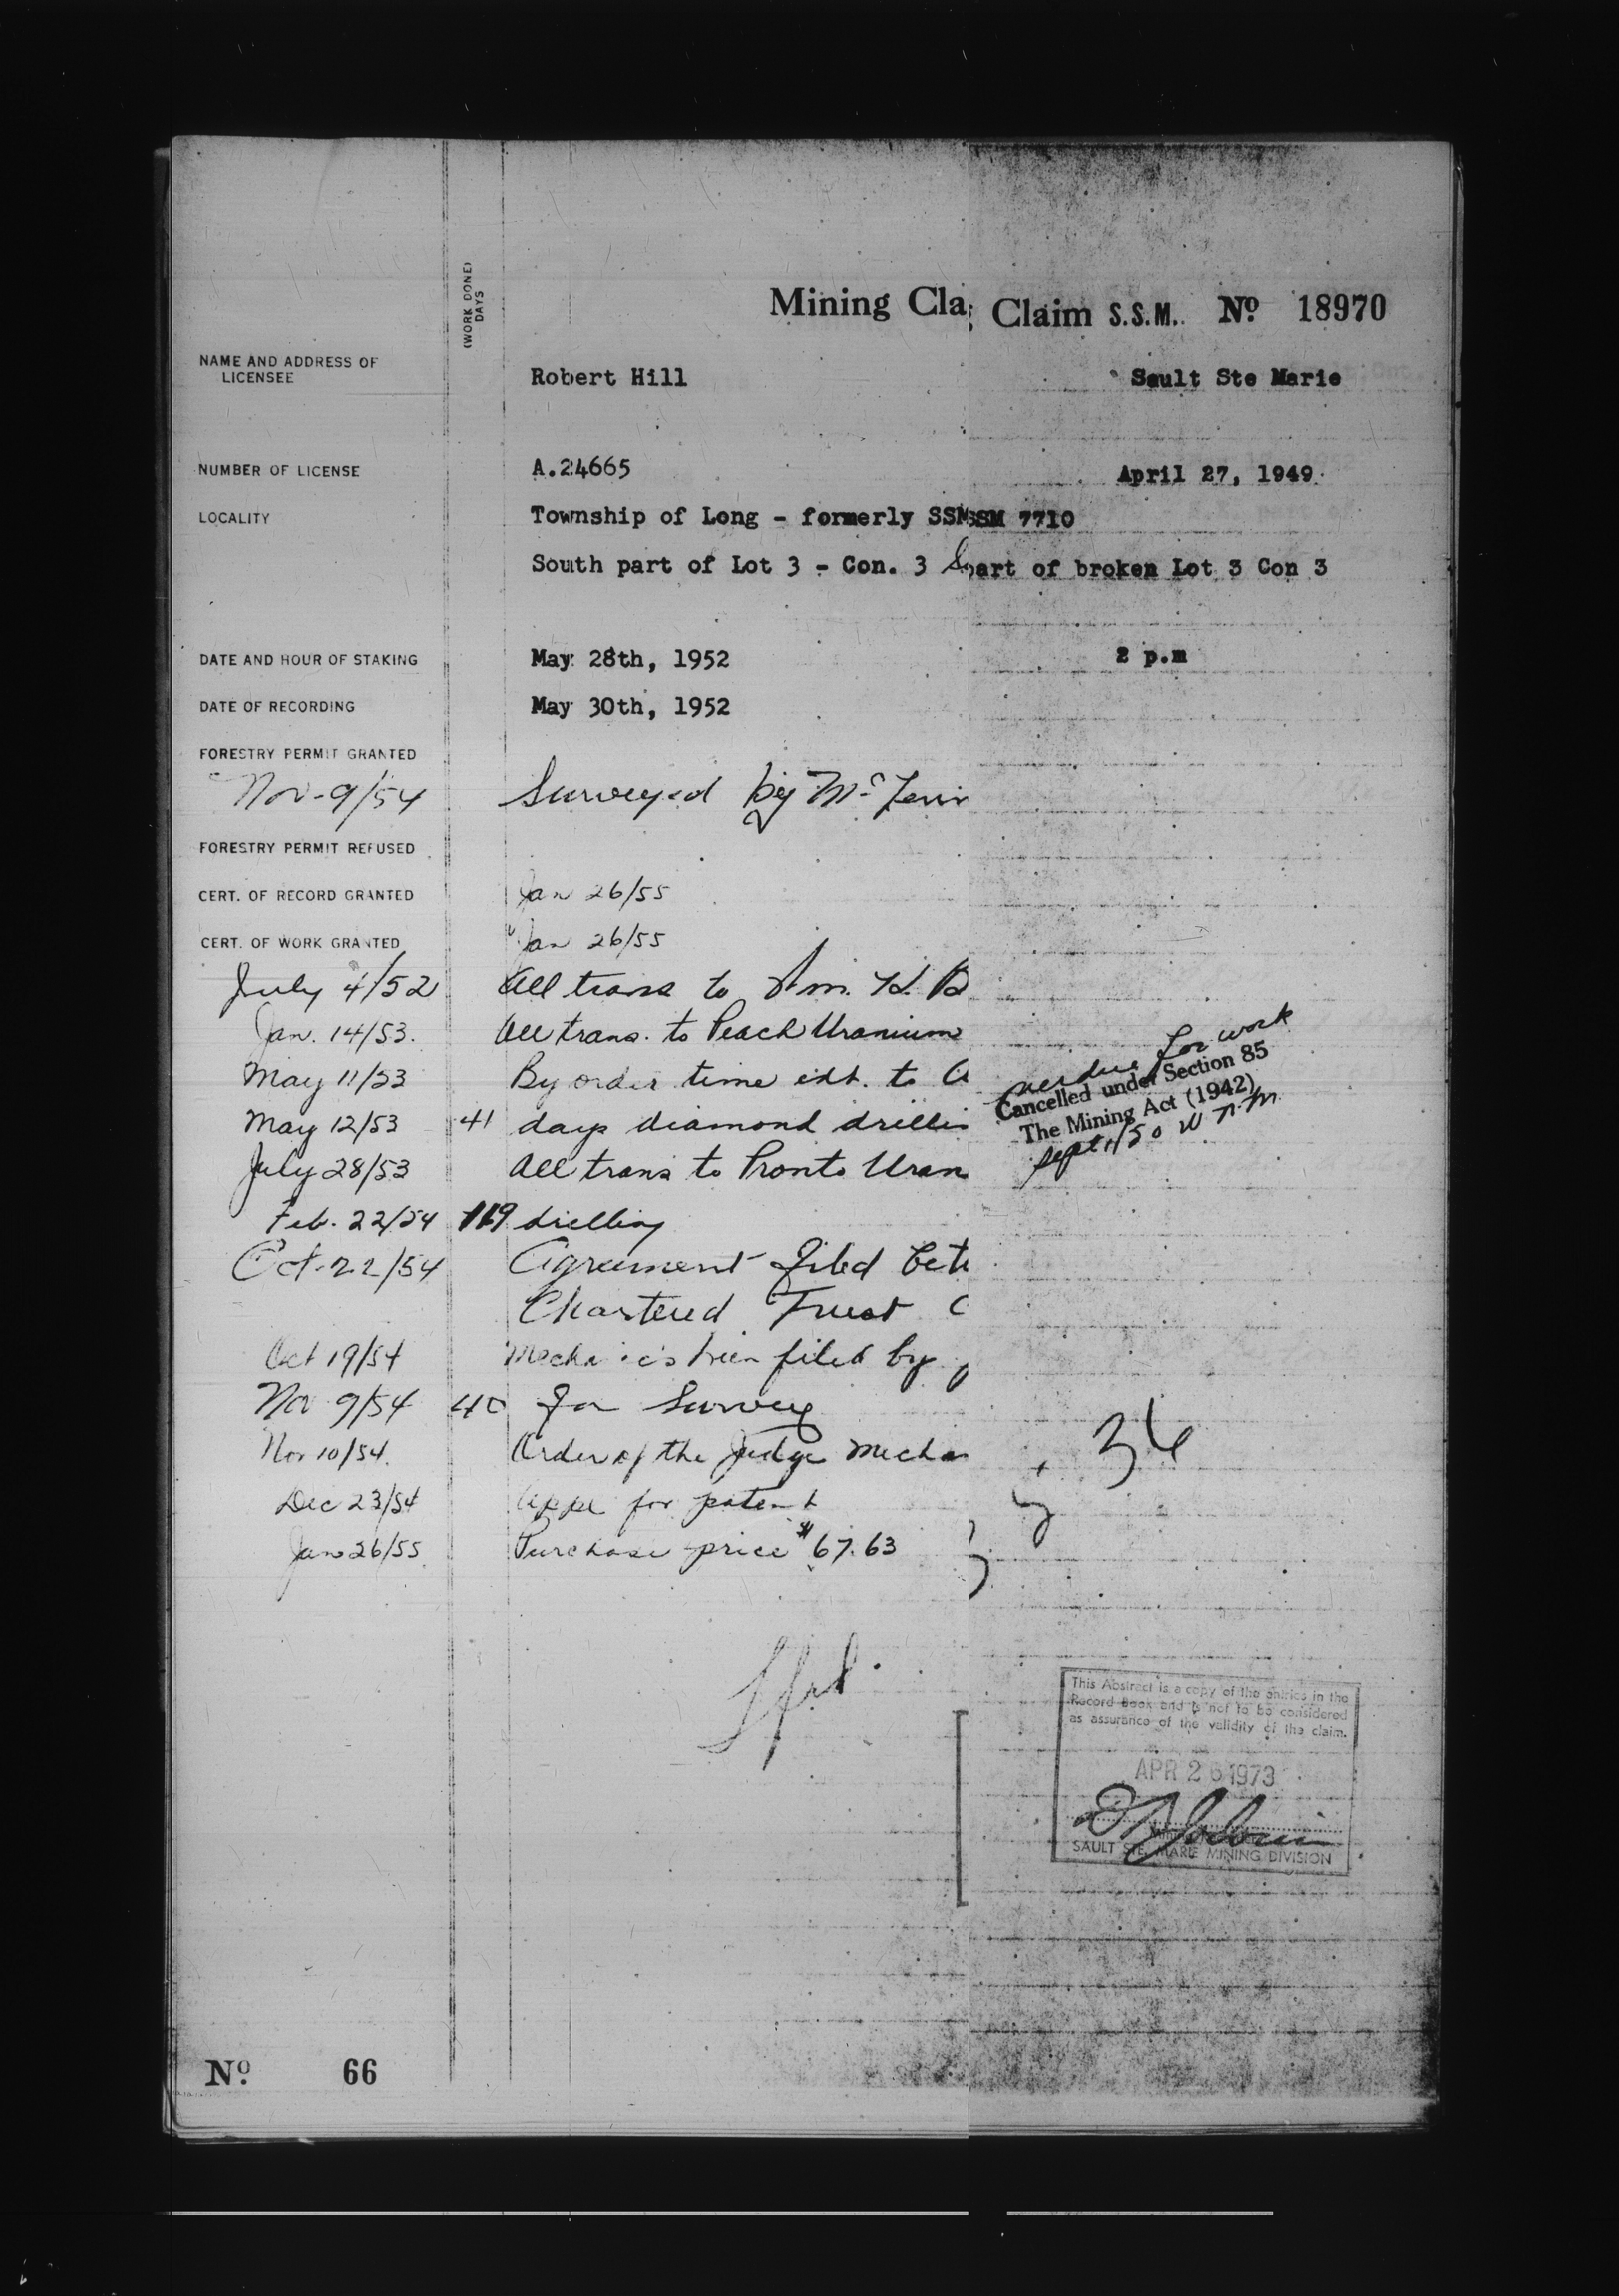 (WORK DONE)
DAYS
Mining Cla Claim S.S.M. Nº 18970
NAME AND ADDRESS OF
LICENSEE
Robert Hill Sault Ste Marie
NUMBER OF LICENSE A.24665 April 27, 1949
LOCALITY Township of Long - formerly SSM SSM 7710
South part of Lot 3 - Con. 3 part of broken Lot 3 Con 3
DATE AND HOUR OF STAKING May 28th, 1952 2 p.m
DATE OF RECORDING May 30th, 1952
FORESTRY PERMIT GRANTED
Nov-9/54 Surveyed by
FORESTRY PERMIT REFUSED
CERT. OF RECORD GRANTED Jan 26/55
CERT. OF WORK GRANTED Jan 26/55
July 4/52 All trans to
Jan. 14/53. All trans. to Peach Uranium
May 11/53 By order time ext. to
May 12/53 41 days diamond drillin
July 28/53 All trans to Pronto Uran
Feb. 22/54 119 drilling
Oct-22/54 Agreement filed bet
Chartered Trust C
Oct 19/54 Mechanic's lien filed by
Nov 9/54 40 for Survey
Nov 10/54. Order of the Judge Mechan
Dec 23/54 Appl for patent
Jan 26/55 Purchase price $67.63
overdue for work
Cancelled under Section 85
The Mining Act (1942)
Sept 1/50
36
This Abstract is a copy of the entries in the
Record Book and is not to be considered
as assurance of the validity of the claim.
APR 26 1973
SAULT STE. MARIE MINING DIVISION
Nº 66